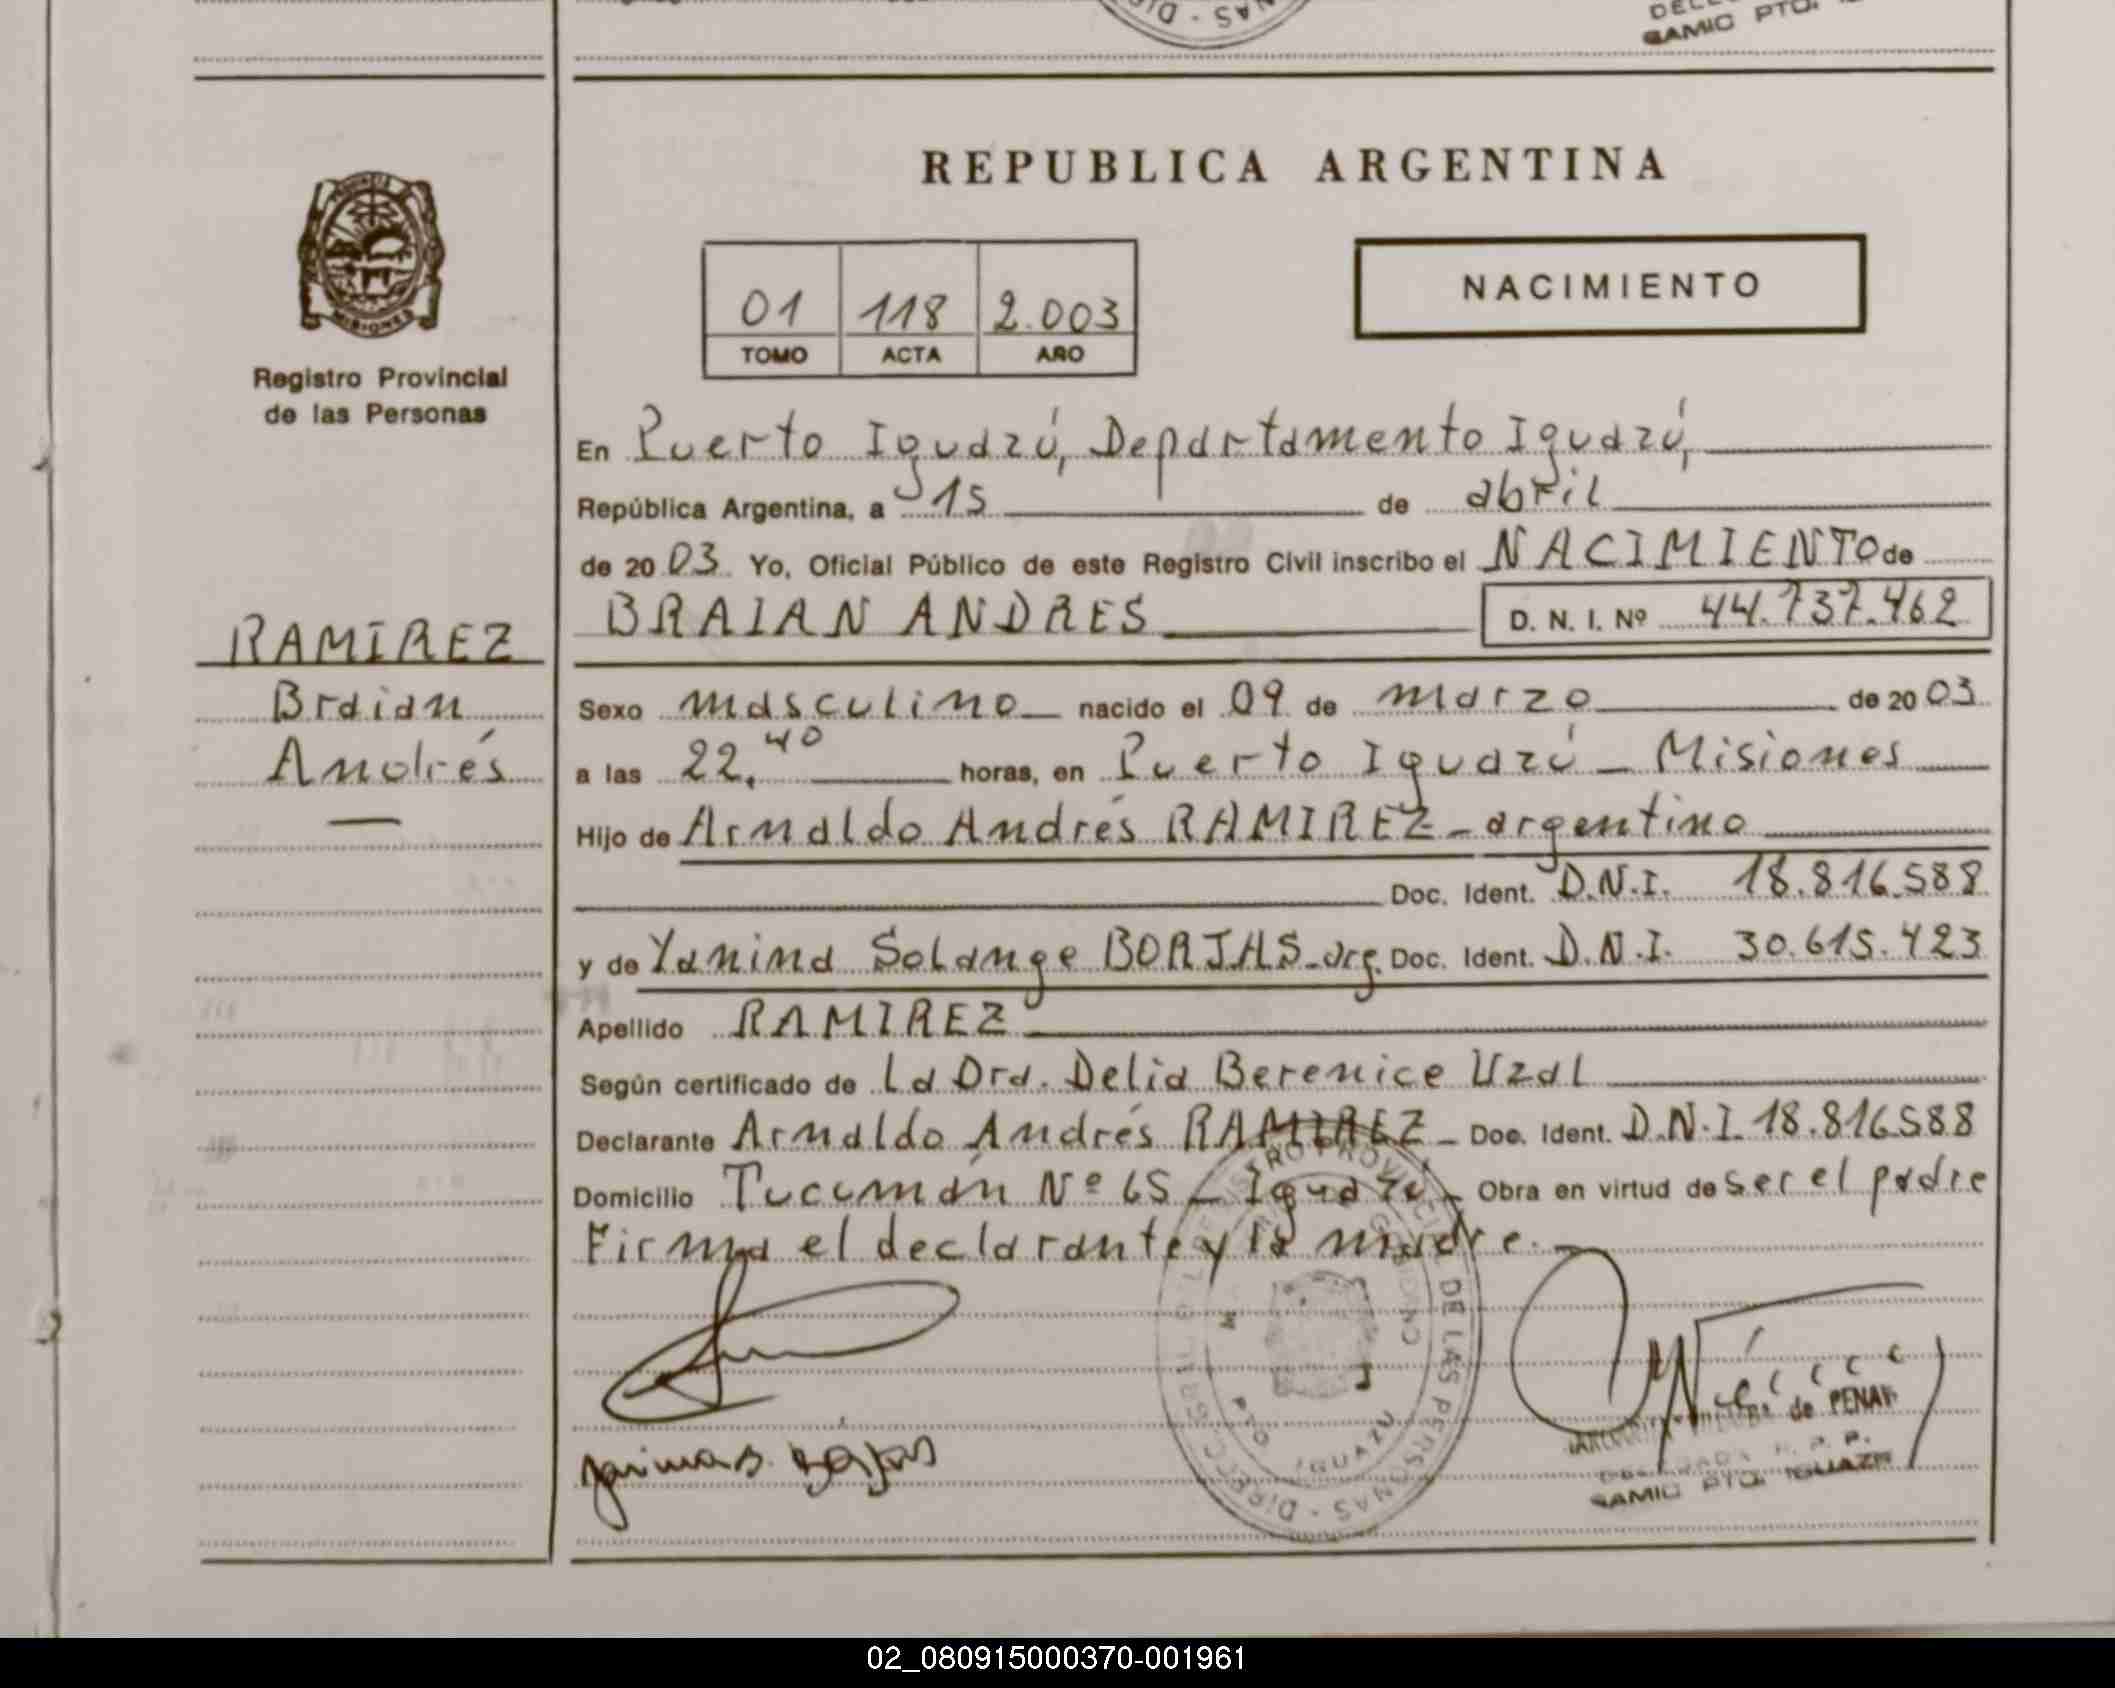 SAMIC PTO.
REPUBLICA ARGENTINA
MISIONES
Registro Provincial
de las Personas
01 118 2.003
TOMO ACTA AÑO
NACIMIENTO
En Puerto Iguazú, Departamento Iguazú,
República Argentina, a 15 de abril
de 20 03 Yo, Oficial Público de este Registro Civil inscribo el NACIMIENTO de
BRAIAN ANDRES D. N. I. Nº 44.737.462
RAMIREZ
Braian
Andrés
Sexo masculino nacido el 09 de marzo de 20 03
a las 22,40 horas, en Puerto Iguazú - Misiones
Hijo de Arnaldo Andrés RAMIREZ - argentino
Doc. Ident. D.N.I. 18.816.588
y de Yanina Solange BORJAS - arg. Doc. Ident. D.N.I. 30.615.423
Apellido RAMIREZ
Según certificado de La Dra. Delia Berenice Uzal
Declarante Arnaldo Andrés RAMIREZ - Doc. Ident. D.N.I. 18.816.588
Domicilio Tucumán Nº 65 - Iguazú - Obra en virtud de ser el padre
Firma el declarante y la madre.-
REGISTRO PROVINCIAL DE LAS PERSONAS
PTO. IGUAZU
de PENAY
SAMIC PTO. IGUAZU
02_080915000370-001961